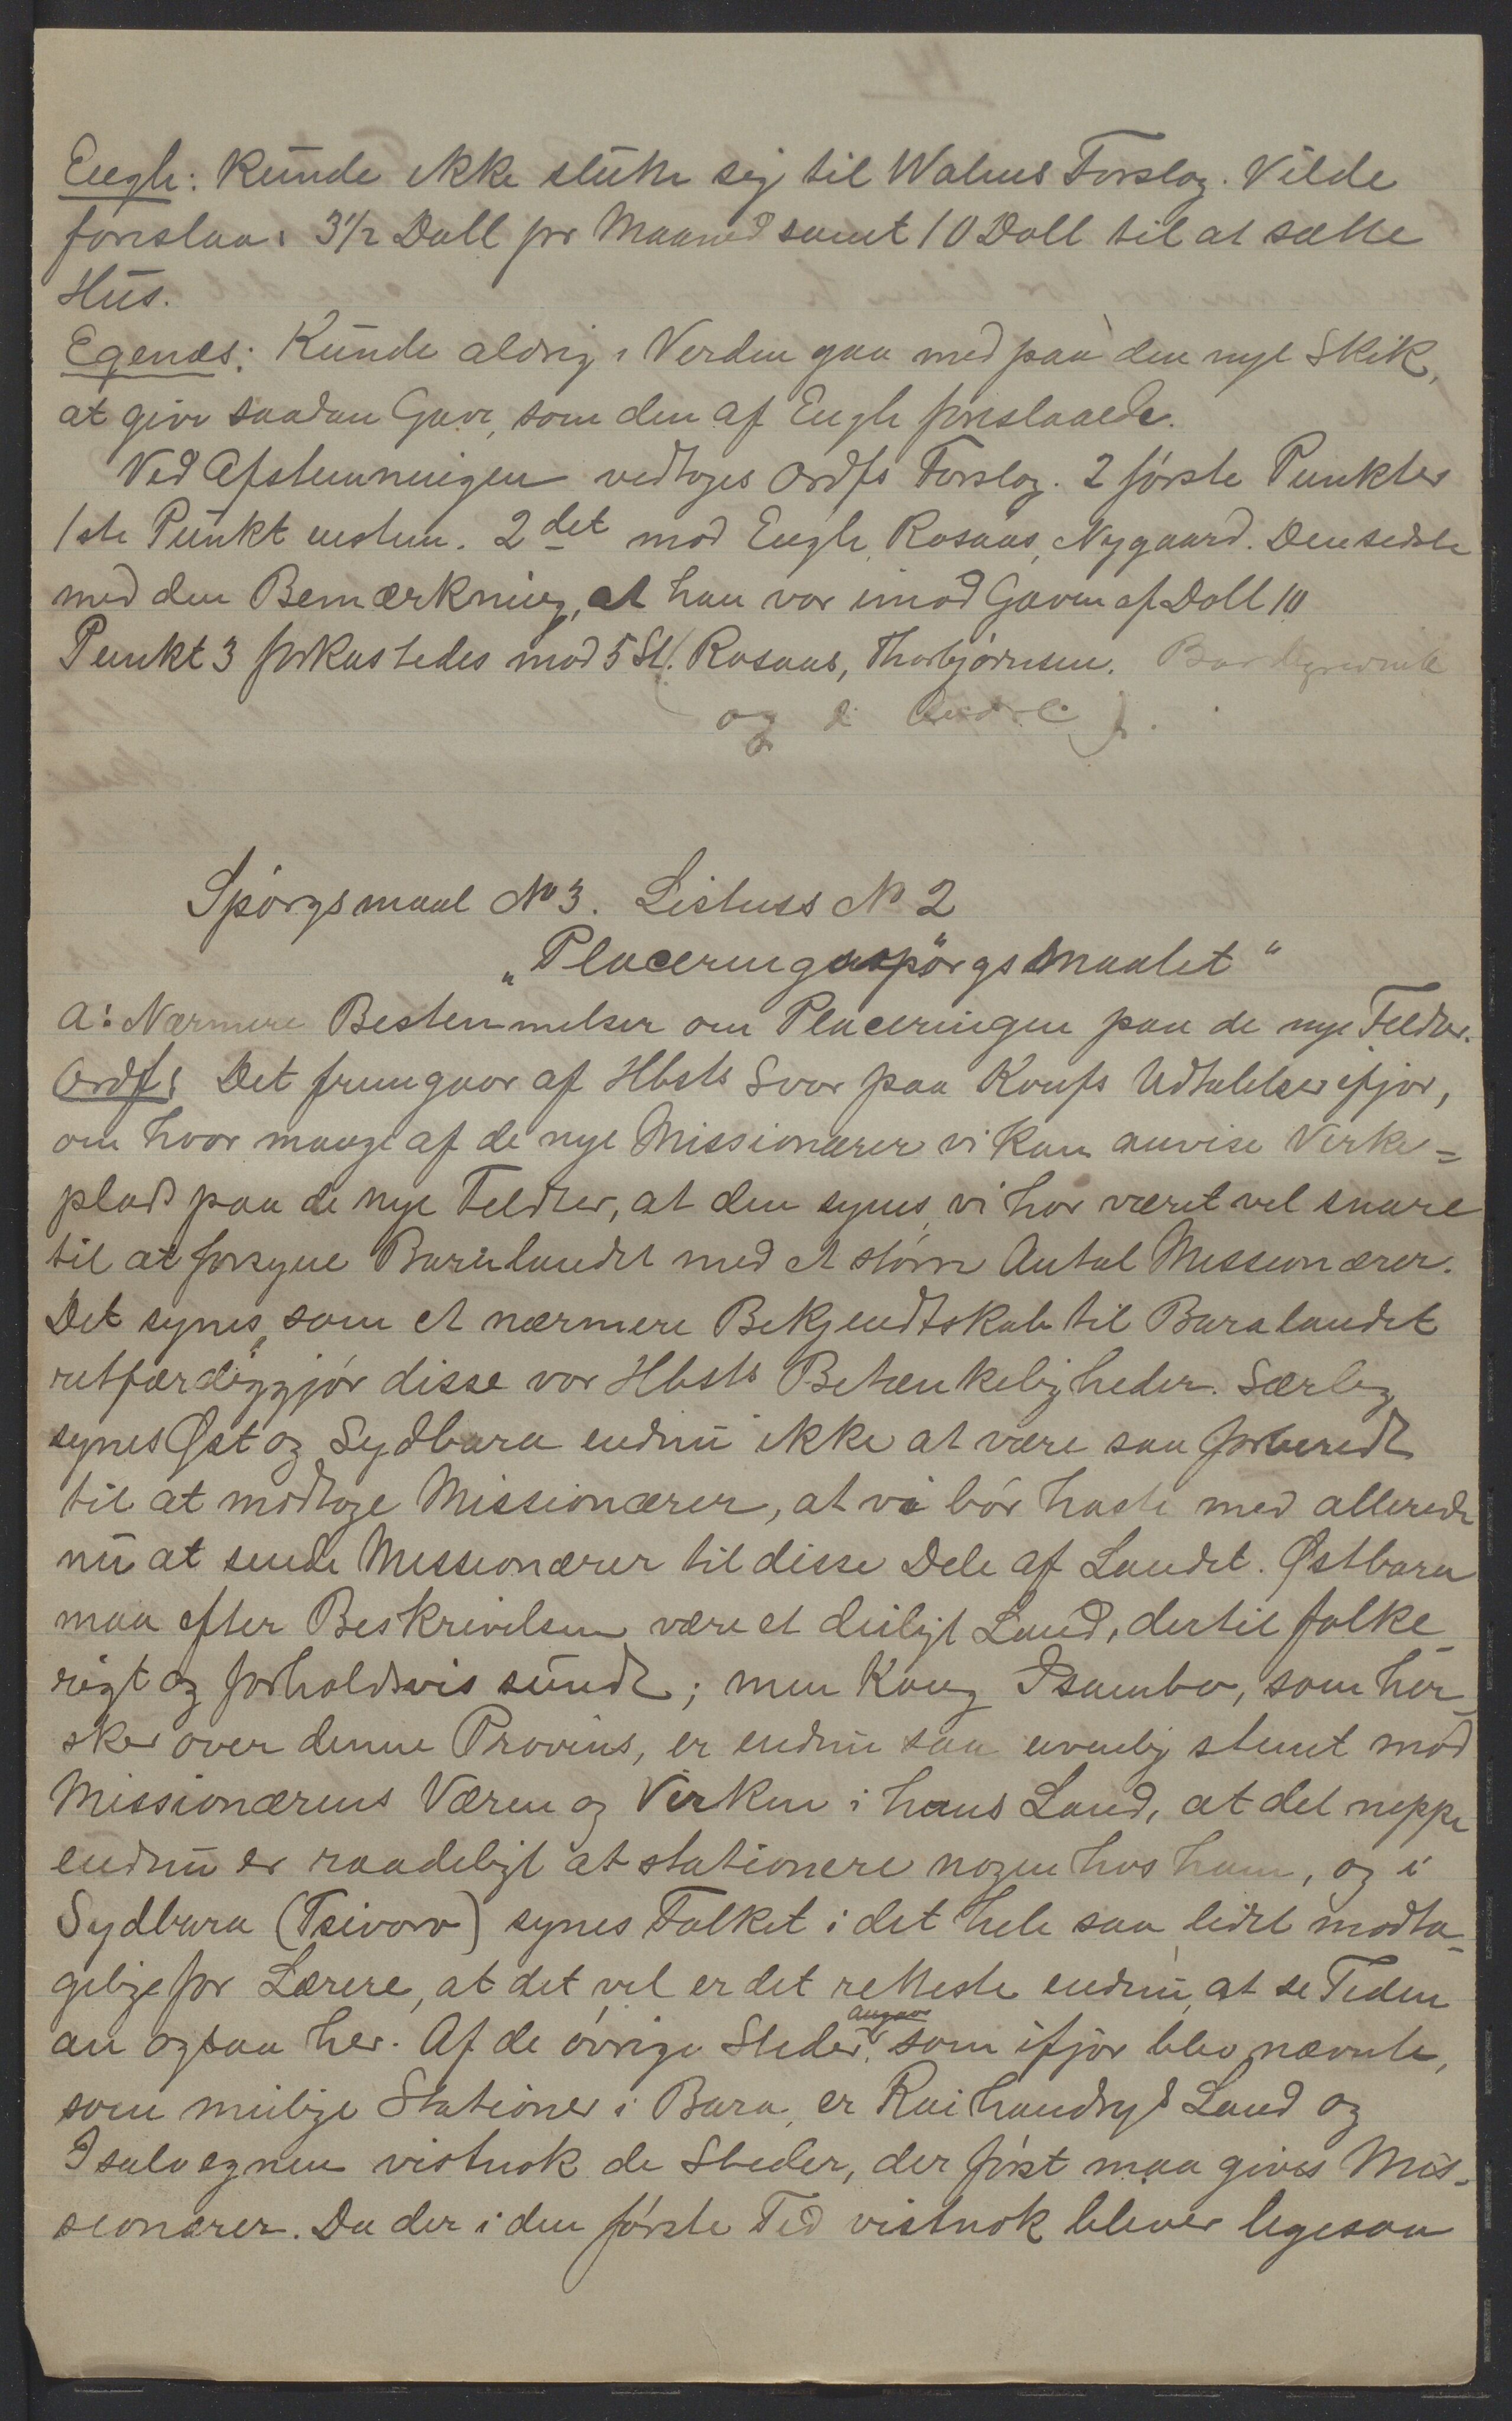 Engh: Kunde ikke slutte sig til Walens Forslag. Vilde
foreslaa: 3 1/2 Doll pr Maaned samt 10 Doll til at sætte
Hus.
Egenæs: Kunde aldrig i Verden gaa med paa den nye Skik,
at give saadan Gave, som den af Engh foreslaaede.
Ved Afstemningen vedtoges Ordfs Forslag. 2 første Punkter
1ste Punkt enstem. 2det mod Engh, Rosaas, Nygaard. Den sidste
med den Bemærkning, at han var imod Gaven af Doll 10
Punkt 3 forkastedes mod 5 St. (Rosaas, Thorbjørnsen.
og
Spørgsmaal No 3. Listens No 2
"Placeringsspørgsmaalet"
a: Nærmere Bestemmelser om Placeringen paa de nye Feldter.
Ordf: Det fremgaar af Hbsts Svar paa Konfs Udtalelser ifjor,
om hvor mange af de nye Missionærer vi kan anvise Virke=
plads paa de nye Feldter, at den synes, vi har været vel snare
til at forsyne Baralandet med et større Antal Missionærer.
Det synes, som et nærmere Bekjendtskab til Baralandet
retfærdiggjør disse vor Hbsts Betænkeligheder. Særlig
synes Øst og Sydbara endnu ikke at være saa forberedt
til at modtage Missionærer, at vi bør haste med allerede
nu at sende Missionærer til disse Dele af Landet. Østbara
maa efter Beskrivelsen være et deiligt Land, dertil folke-
rigt og forholdsvis sundt; men Kong Isambo, som her-
sker over denne Provins, er endnu saa uvenlig stemt mod
Missionærens Væren og Virken i hans Land, at det neppe
endnu er raadeligt at stationere nogen hos ham, og i
Sydbara (Tsivoro) synes Folket i det hele saa lidet modta-
gelige for Lærere, at det vel er det retteste endnu, at se Tiden
an ogsaa her. Af de øvrige Steder, angaar som ifjor blev nævnte,
som mulige Stationer i Bara, er Raihandrys Land og
Isaloegnen vistnok de Steder, der først maa gives Mis-
sionærer. Da der i den første Tid vistnok bliver ligesaa